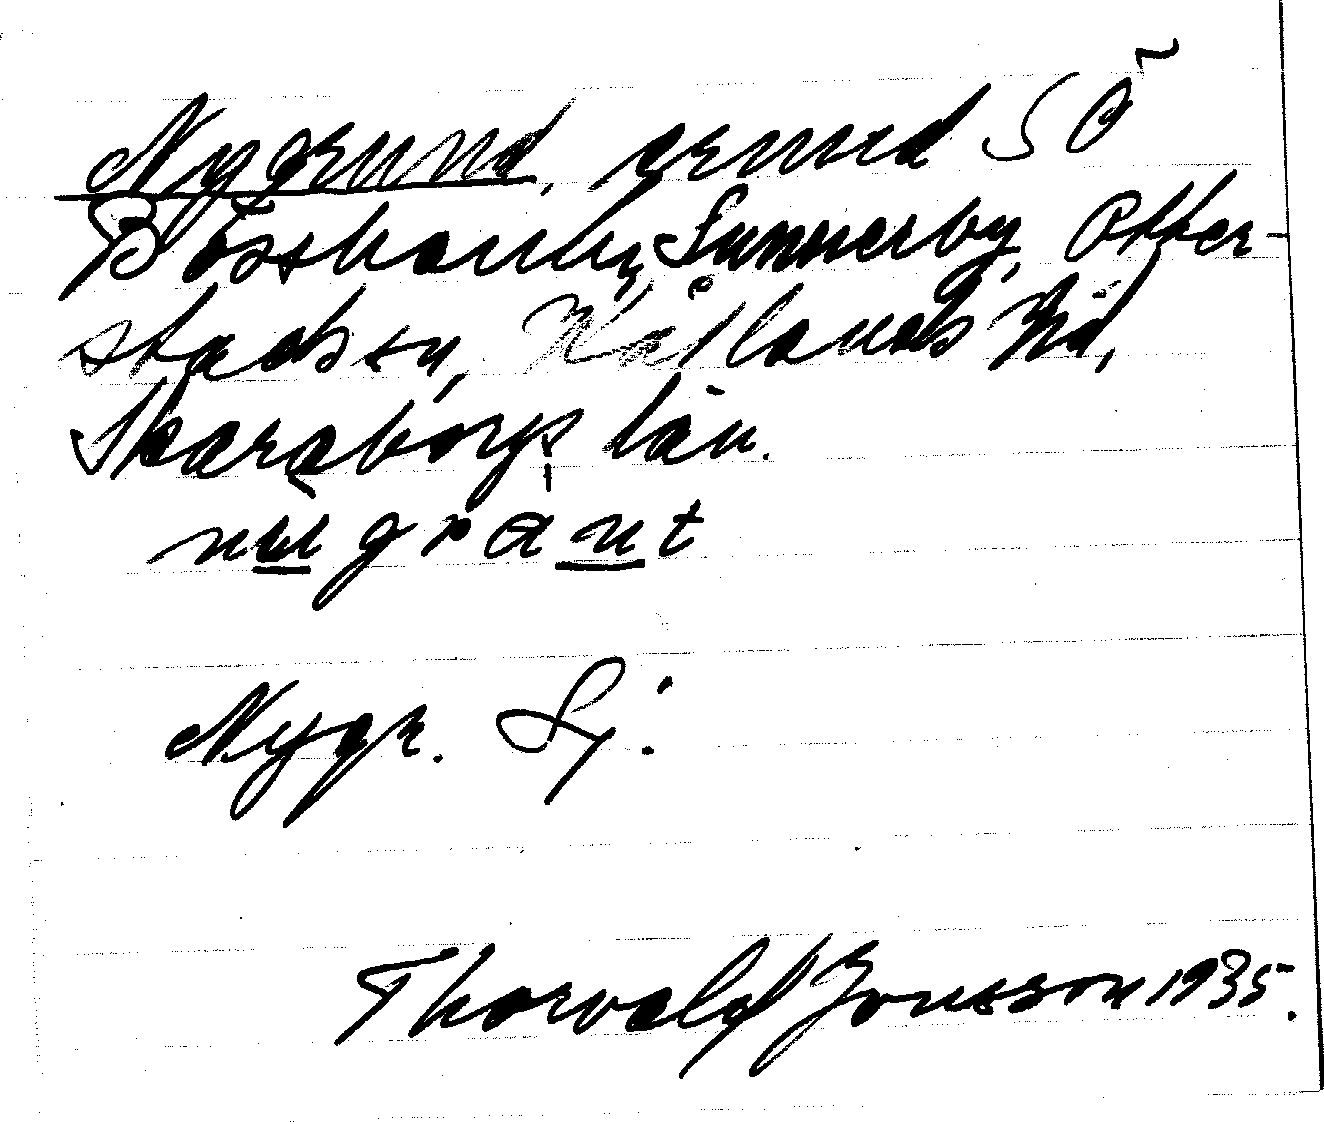 Nygrund, grund SÖ
Bösshamn, Sunnerby, Otter-
stads sn, Kållands hd,
Skaraborgs län.
Nygr. Sj:
Thorvald Jonsson 1935.